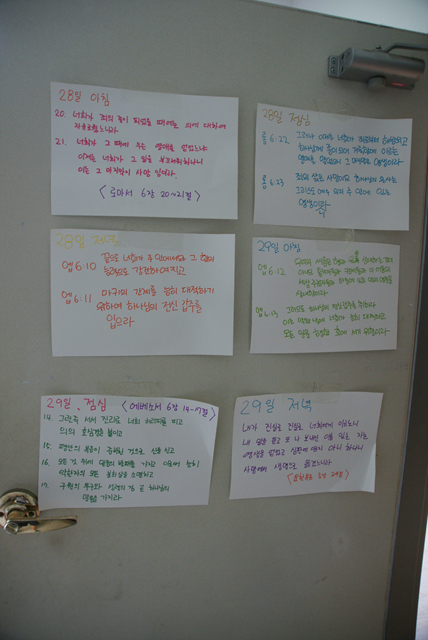 28일 아침
20. 너희가 죄의 종이 되었을 때에는 의에 대하여
자유로웠느니라
21. 너희가 그 때에 무슨 열매를 얻었느냐
이제는 너희가 그 일을 부끄러워하나니
이는 그 마지막이 사망임이라
<로마서 6장 20~21절>
28일 점심
롬 6:22 그러나 이제는 너희가 죄로부터 해방되고
하나님께 종이 되어 거룩함에 이르는
열매를 맺었으니 그 마지막은 영생이라
롬 6:23 죄의 삯은 사망이요 하나님의 은사는
그리스도 예수 우리 주 안에 있는
영생이라
28일 저녁
엡 6:10 끝으로 너희가 주 안에서와 그 힘의
능력으로 강건하여지고
엡 6:11 마귀의 간계를 능히 대적하기
위하여 하나님의 전신 갑주를
입으라
29일 아침
엡 6:12
엡 6:13 그러므로 하나님의 전신갑주를 취하라
이는 악한 날에 너희가 능히 대적하고
모든 일을 행한 후에 서기 위함이라
29일 점심 <에베소서 6장 14-17절>
14. 그런즉 서서 진리로 너희 허리띠를 띠고
의의 호심경을 붙이고
15. 평안의 복음이 준비한 것으로 신을 신고
16. 모든 것 위에 믿음의 방패를 가지고 이로써 능히
악한자의 모든 불화살을 소멸하고
17. 구원의 투구와 성령의 검 곧 하나님의
말씀을 가지라
29일 저녁
내가 진실로 진실로 너희에게 이르노니
내 말을 듣고 또 나 보내신 이를 믿는 자는
영생을 얻었고 심판에 이르지 아니하나니
사망에서 생명으로 옮겼느니라
<요한복음 5장 24절>